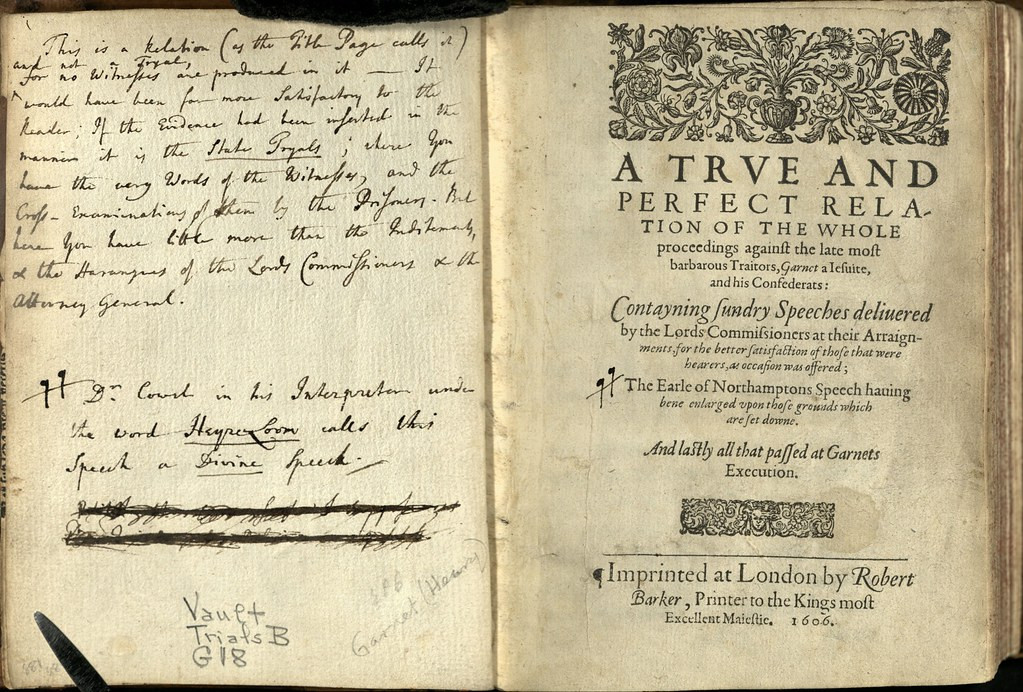 This is a Relation (as the Title Page calls it)
and not a Tryal,
for no Witnesses are produced in it — It
would have been far more Satisfactory to the
Reader; If the Evidence had been inserted in the
manner it is the State Tryals; where You
have the very Words of the Witnesses, and the
Cross-Examinations of them by the Prisoners. But
here You have little more than the Inditements,
& the Harangues of the Lords Commissioners & the
Attorney General.
Dr. Cowel in his Interpreter under
the word HeyreLoom calls this
Speech a Divine Speech.
Garnet (Henry)
Vault
Trials B
G18
A TRVE AND
PERFECT RELA-
TION OF THE WHOLE
proceedings againſt the late moſt
barbarous Traitors, Garnet a Ieſuite,
and his Confederats:
Contayning ſundry Speeches deliuered
by the Lords Commiſsioners at their Arraign-
ments, for the better ſatisfaction of thoſe that were
hearers, as occaſion was offered;
The Earle of Northamptons Speech hauing
bene enlarged vpon thoſe grounds which
are ſet downe.
And laſtly all that paſſed at Garnets
Execution.
Imprinted at London by Robert
Barker, Printer to the Kings moſt
Excellent Maieſtie. 1606.